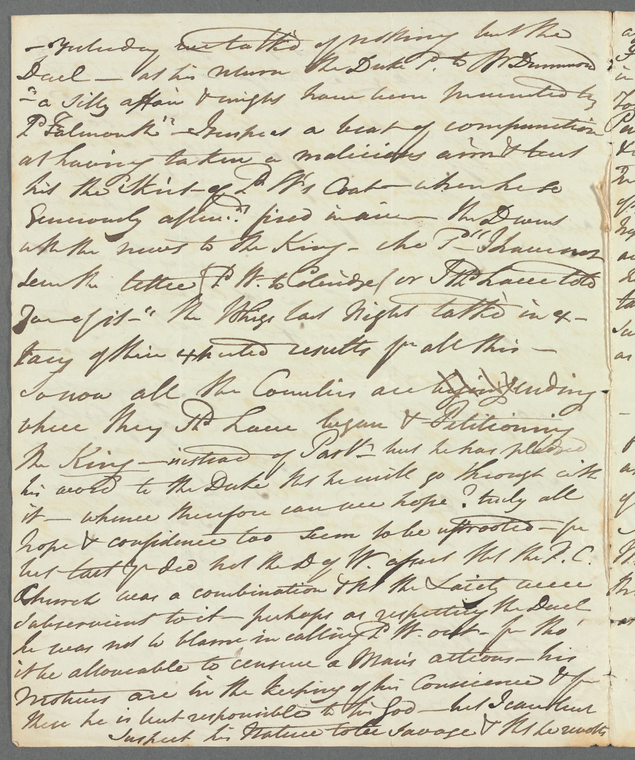 – Yesterday we talk'd of nothing but the
Duel – at his return the Duke S.d to Mr Drummond
"a silly affair & might have been prevented by
Ld Falmouth" – I suspect a beat of compunction
at having taken a malicious aim & but
hit the Skirt of Ld W's Coat – when he so
Generously afterw.ds fired in air – the D went
with the news to the King – who S.d "I have not
seen the letter (Ld W. to Coleridge) or I Shd have told
you of it –" the Whigs last Night talk'd in ex-
tacy of their expected results fr all this –
So now all the Counties are ending
where they Shd have began & Petitioning
the King – instead of Parlt – but he has pledged
his word to the Duke tht he will go through with
it – whence therefore can we hope? truly all
hope & confidence too seem to be uprooted – for
but last yr did not the D of W. assert tht the R. C.
Church was a combination & tht the Laity were
subservient to it – perhaps as respecting the Duel
he was not to blame in calling Ld W. out – for tho'
it be allowable to censure a Man's actions – his
motives are in the keeping of his Conscience & for
these he is but responsible to his God – but I cannot but
suspect his Nature to be savage & tht he